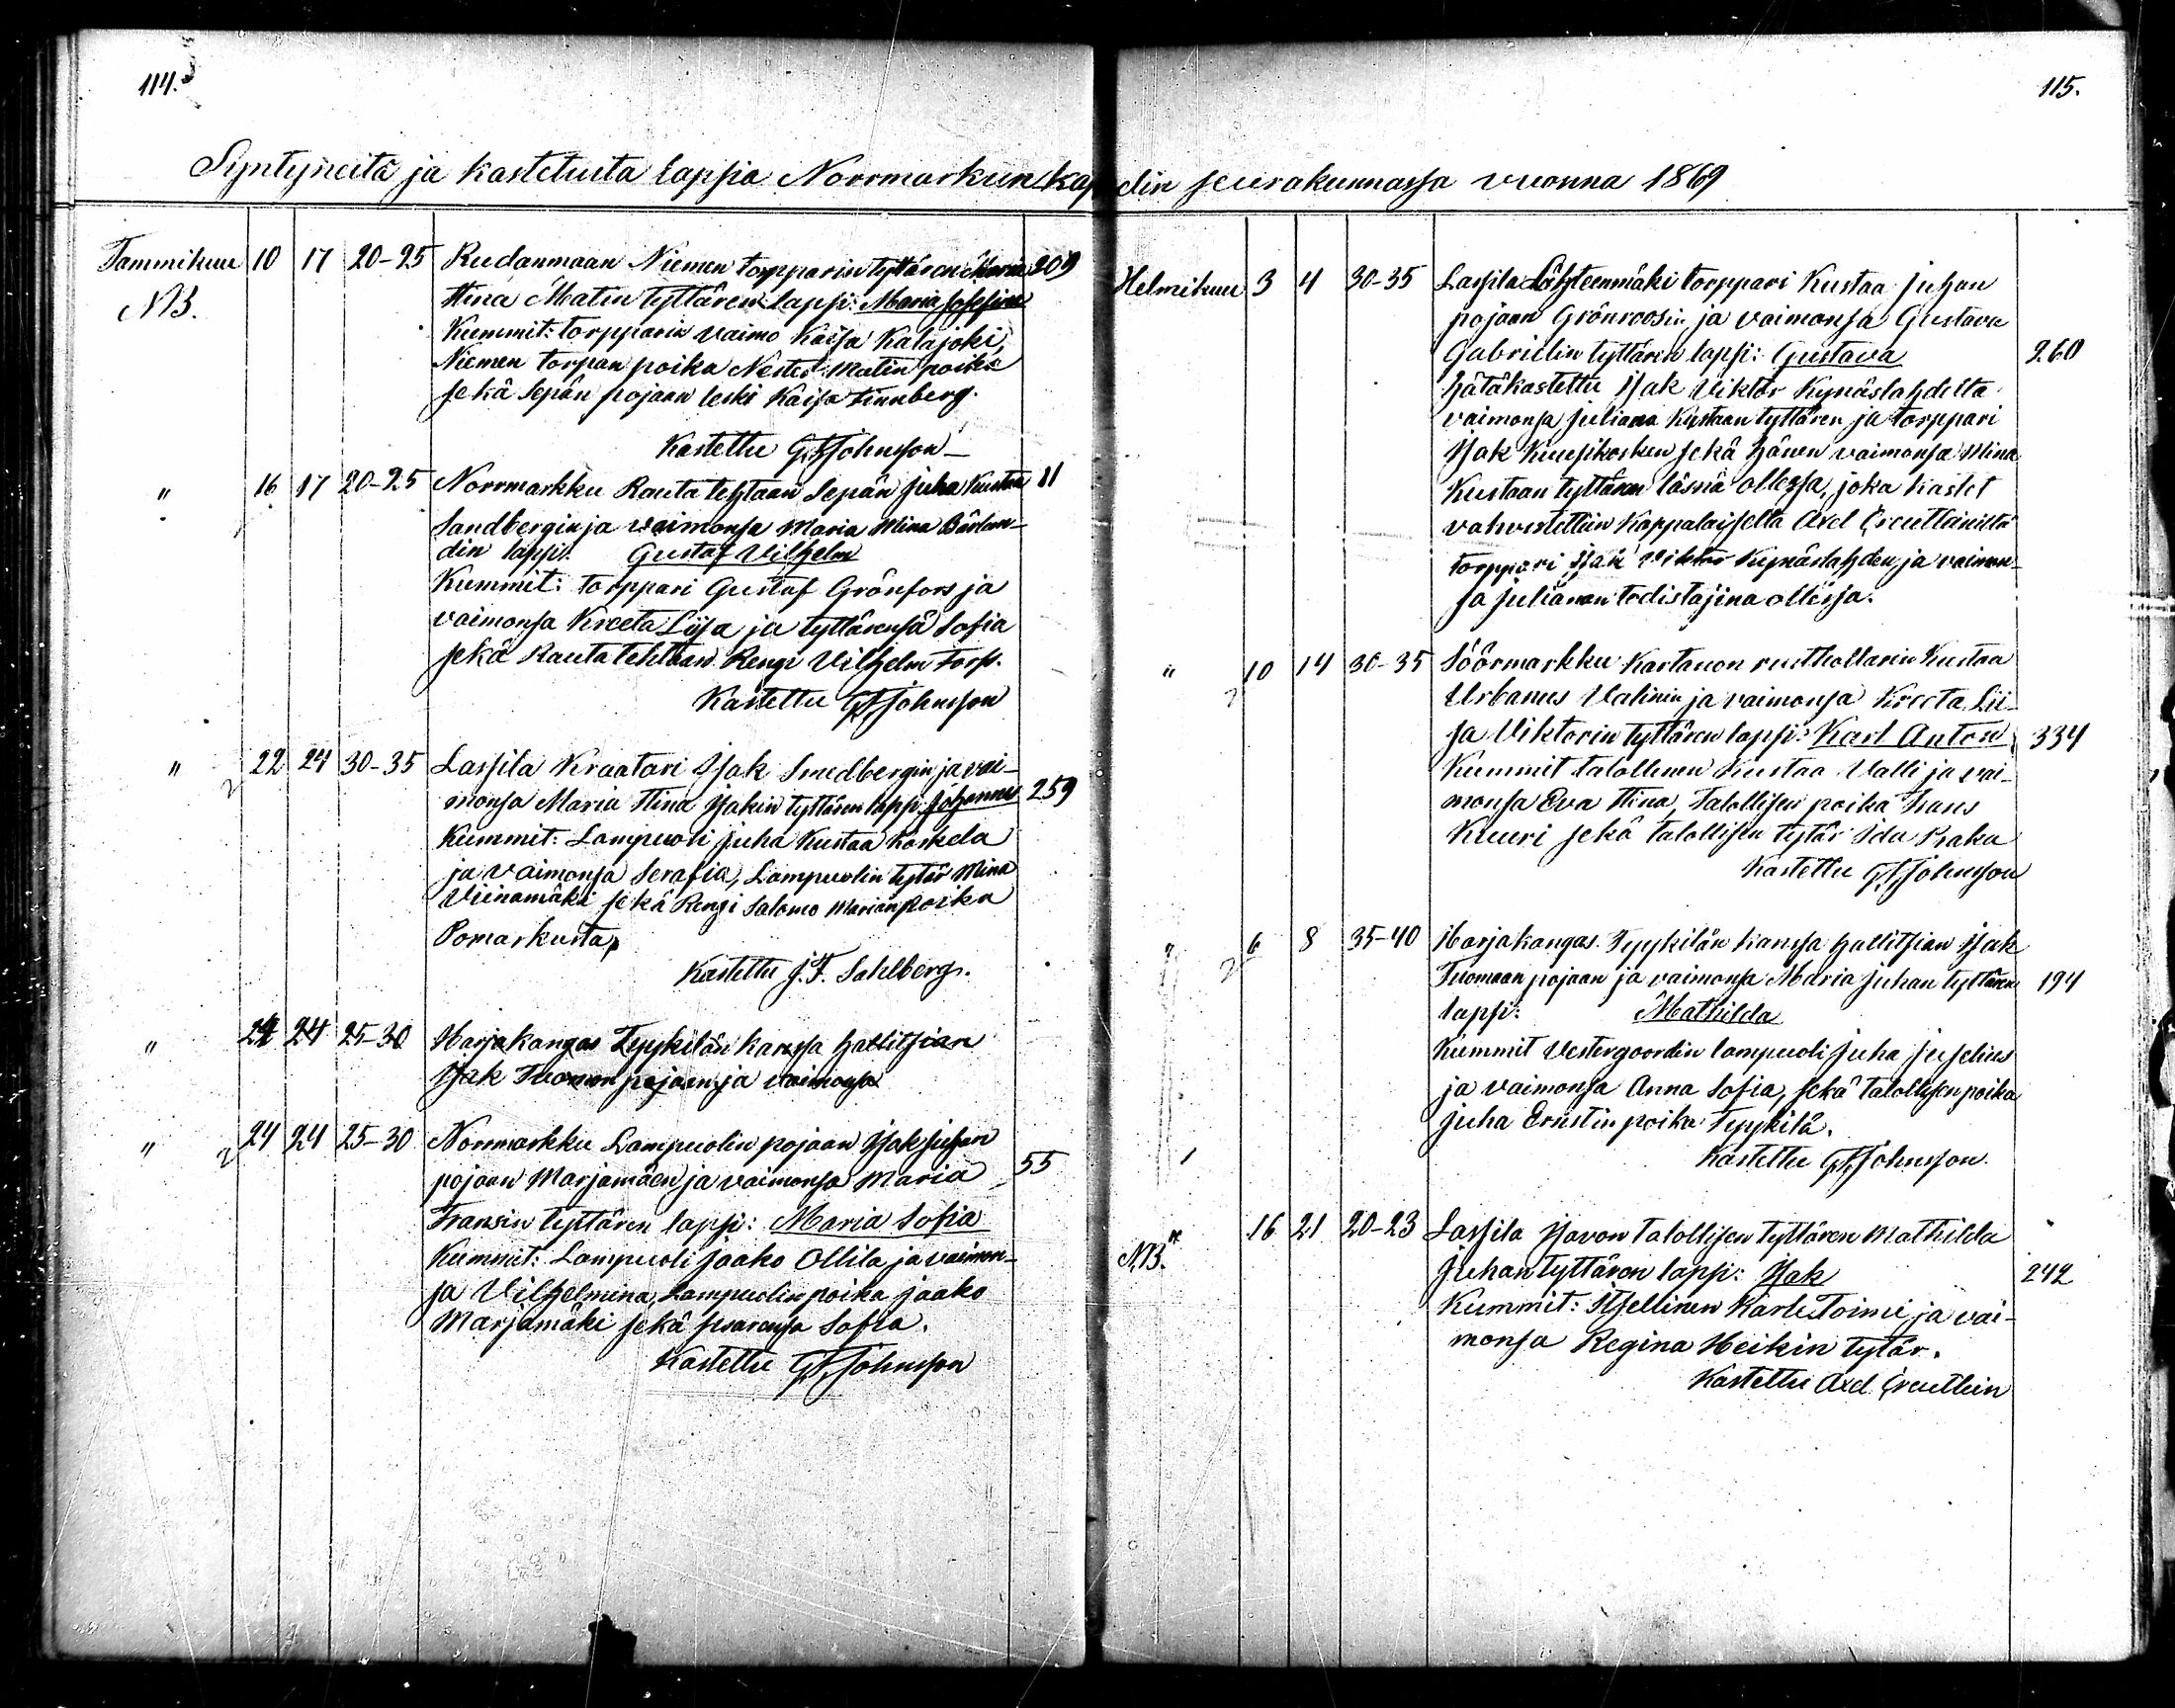 114.
Syntyneitä ja kastetuita lapsia Norrmarkun kap
Tammikuu 10 17 20-25 Rudanmaan Niemen torpparin tyttären Maria 209
NB. Stina Matin tyttären lapsi: Maria Josefina
Kummit: torpparin vaimo Kaisa Katajoki,
Niemen torpan poika Nestor Matin poika
sekä Sepän pojaan leski Kaisa Finnberg.
Kastettu G.F. Johnsson
" 16 17 20-25 Norrmarkku Rauta tehtaan Sepän Juha Kustaa 11
Sandbergin ja vaimonsa Maria Mina
din lapsi: Gustaf Vilhelm
Kummit: torppari Gustaf Grönfors ja
vaimonsa Kreeta Liisa ja tyttärensä Sofia
sekä Rauta tehtaan Rengi Vilhelm Fors.
Kastettu G.F. Johnsson
" 22 24 30-35 Lassila Kraatari Isak Smedbergin ja vai-
monsa Maria Stina Isakin tyttären lapsi: Johannes 259
Kummit: Lampuoli Juha Kustaa Koskela
ja vaimonsa Serafia, Lampuolin tytär Mina
Viinamäki sekä Rengi Salomo Marian poika
Pomarkusta,
Kastettu J.F. Sahlberg.
" 24 24 25-30 Harjakangas Tyykilän kanssa hallitsian
Isak Tuoman pojaan ja vaimonsa
" 24 24 25-30 Norrmarkku Lampuolin pojaan Isak Juhan
pojaan Marjamäen ja vaimonsa Maria 55
Fransin tyttären lapsi: Maria Sofia
Kummit: Lampuoli Jaako Ollila ja vaimon-
sa Vilhelmina, Lampuolin poika Jaako
Marjamäki sekä sisarensa Sofia.
Kastettu G.F. Johnsson
115.
elin seurakunnassa vuonna 1869
Helmikuu 3 4 30-35 Lassila Lähteenmäki torppari Kustaa Juhan
pojaan Grönroosin ja vaimonsa Gustava
Gabrielin tyttären lapsi: Gustava 260
hätäkastettu Isak Viktor Kynäslahdelta
vaimonsa Juliana Kustaan tyttären ja torppari
Isak Kuusikosken sekä hänen vaimonsa Mina
Kustaan tyttären läsnä ollessa, joka kastet
vahvistettiin Kappalaiselta Axel
torppari Isak Viktor Kynäslahden ja vaimon-
sa Julianan todistajina ollessa.
" 10 14 30-35 Söörmarkku Kartanon rusthollarin Kustaa
Urbanus Valinin ja vaimonsa Kreeta Lii-
sa Viktorin tyttären lapsi: Karl Anton 334
Kummit talollinen Kustaa Valli ja vai-
monsa Eva Stina, Talollisen poika Frans
Kuuri sekä talollisen tytär Ida Raka
Kastettu G.F. Johnsson
" 6 8 35-40 Harjakangas Tyykilän kanssa hallitsian Isak
Tuomaan pojaan ja vaimonsa Maria Juhan tyttären 194
lapsi: Mathilda
Kummit Vestergoordin lampuoli Juha Juselius
ja vaimonsa Anna Sofia, sekä talollisen poika
Juha Ernstin poika Tyykilä.
Kastettu G.F. Johnsson.
NB. " 16 21 20-23 Lassila Isavon talollisen tyttären Mathilda
Juhan tyttären lapsi: Isak 242
Kummit: Itsellinen Kaarle Toimi ja vai-
monsa Regina Heikin tytär.
Kastettu Axel